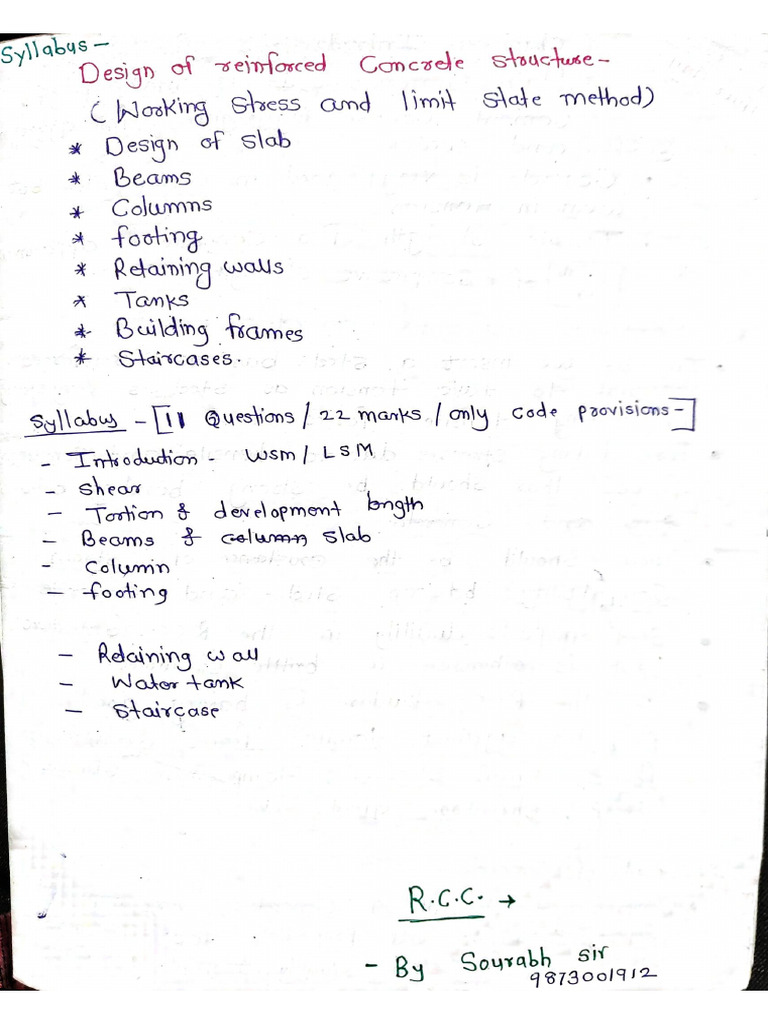 Syllabus -
Design of reinforced Concrete structure -
(Working stress and limit state method)
* Design of slab
* Beams
* Columns
* footing
* Retaining walls
* Tanks
* Building frames
* Staircases.
Syllabus - [11 Questions / 22 marks / only code provisions -]
- Introduction - WSM / LSM
- Shear
- Tortion & development length
- Beams & column slab
- Column
- footing
- Retaining wall
- Water tank
- Staircase
R.C.C. →
- By Sourabh sir
9873001912